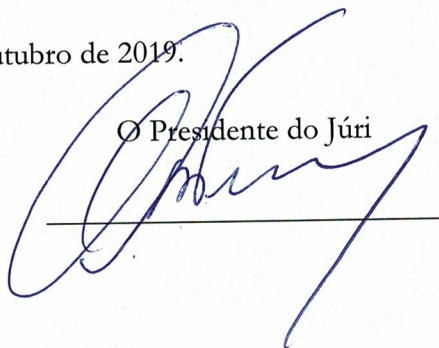 utubro de 2019.
O Presidente do Júri